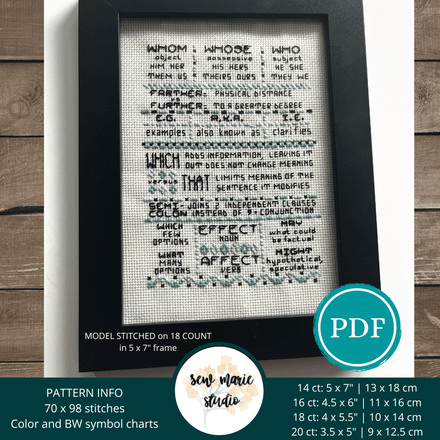 WHOM WHOSE WHO
object possessive subject
HIM HER HIS HERS HE SHE
THEM US THEIRS OURS THEY WE
FARTHER: PHYSICAL DISTANCE
FURTHER: TO A GREATER DEGREE
E.G. A.K.A. I.E.
examples also known as clarifies
WHICH ADDS INFORMATION, LEAVING IT
OUT DOES NOT CHANGE MEANING
versus THAT LIMITS MEANING OF THE
SENTENCE IT MODIFIES
SEMI- JOINS 2 INDEPENDENT CLAUSES
COLON INSTEAD OF , + CONJUNCTION
WHICH
FEW
OPTIONS
WHAT
MANY
OPTIONS
EFFECT
NOUN
AFFECT
VERB
MAY
what could
be factual
MIGHT
hypothetical,
speculation
MODEL STITCHED on 18 COUNT
in 5 x 7" frame
PDF
PATTERN INFO
70 x 98 stitches
Color and BW symbol charts
sew marie
studio
14 ct: 5 x 7" | 13 x 18 cm
16 ct: 4.5 x 6" | 11 x 16 cm
18 ct: 4 x 5.5" | 10 x 14 cm
20 ct: 3.5 x 5" | 9 x 12.5 cm